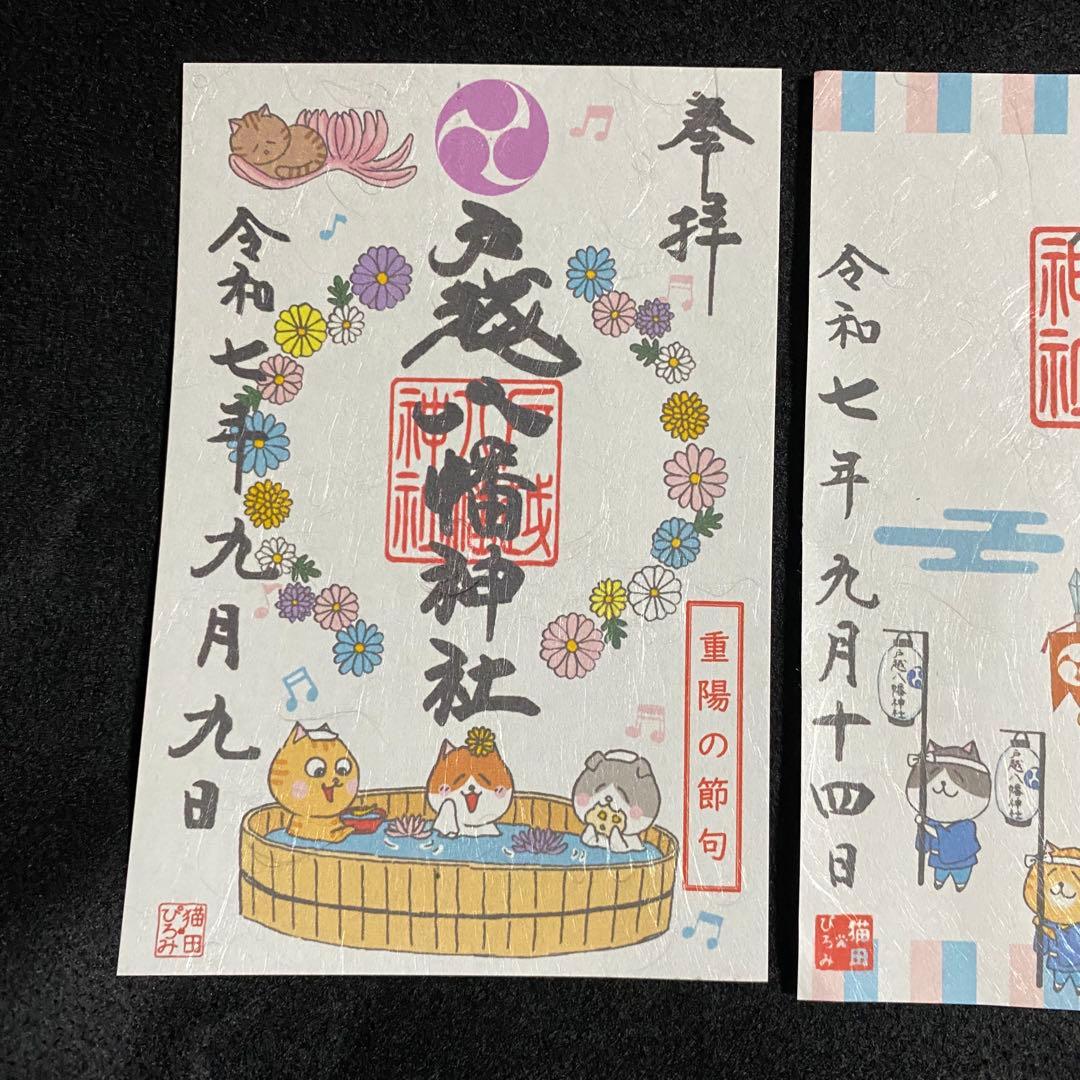 奉拝
戸越八幡神社
戸越
八幡
神社
令和七年九月九日
重陽の節句
猫田
ぴろみ
令和七年九月十四日
戸越八幡神社
戸越八幡神社
猫田
ぴろみ